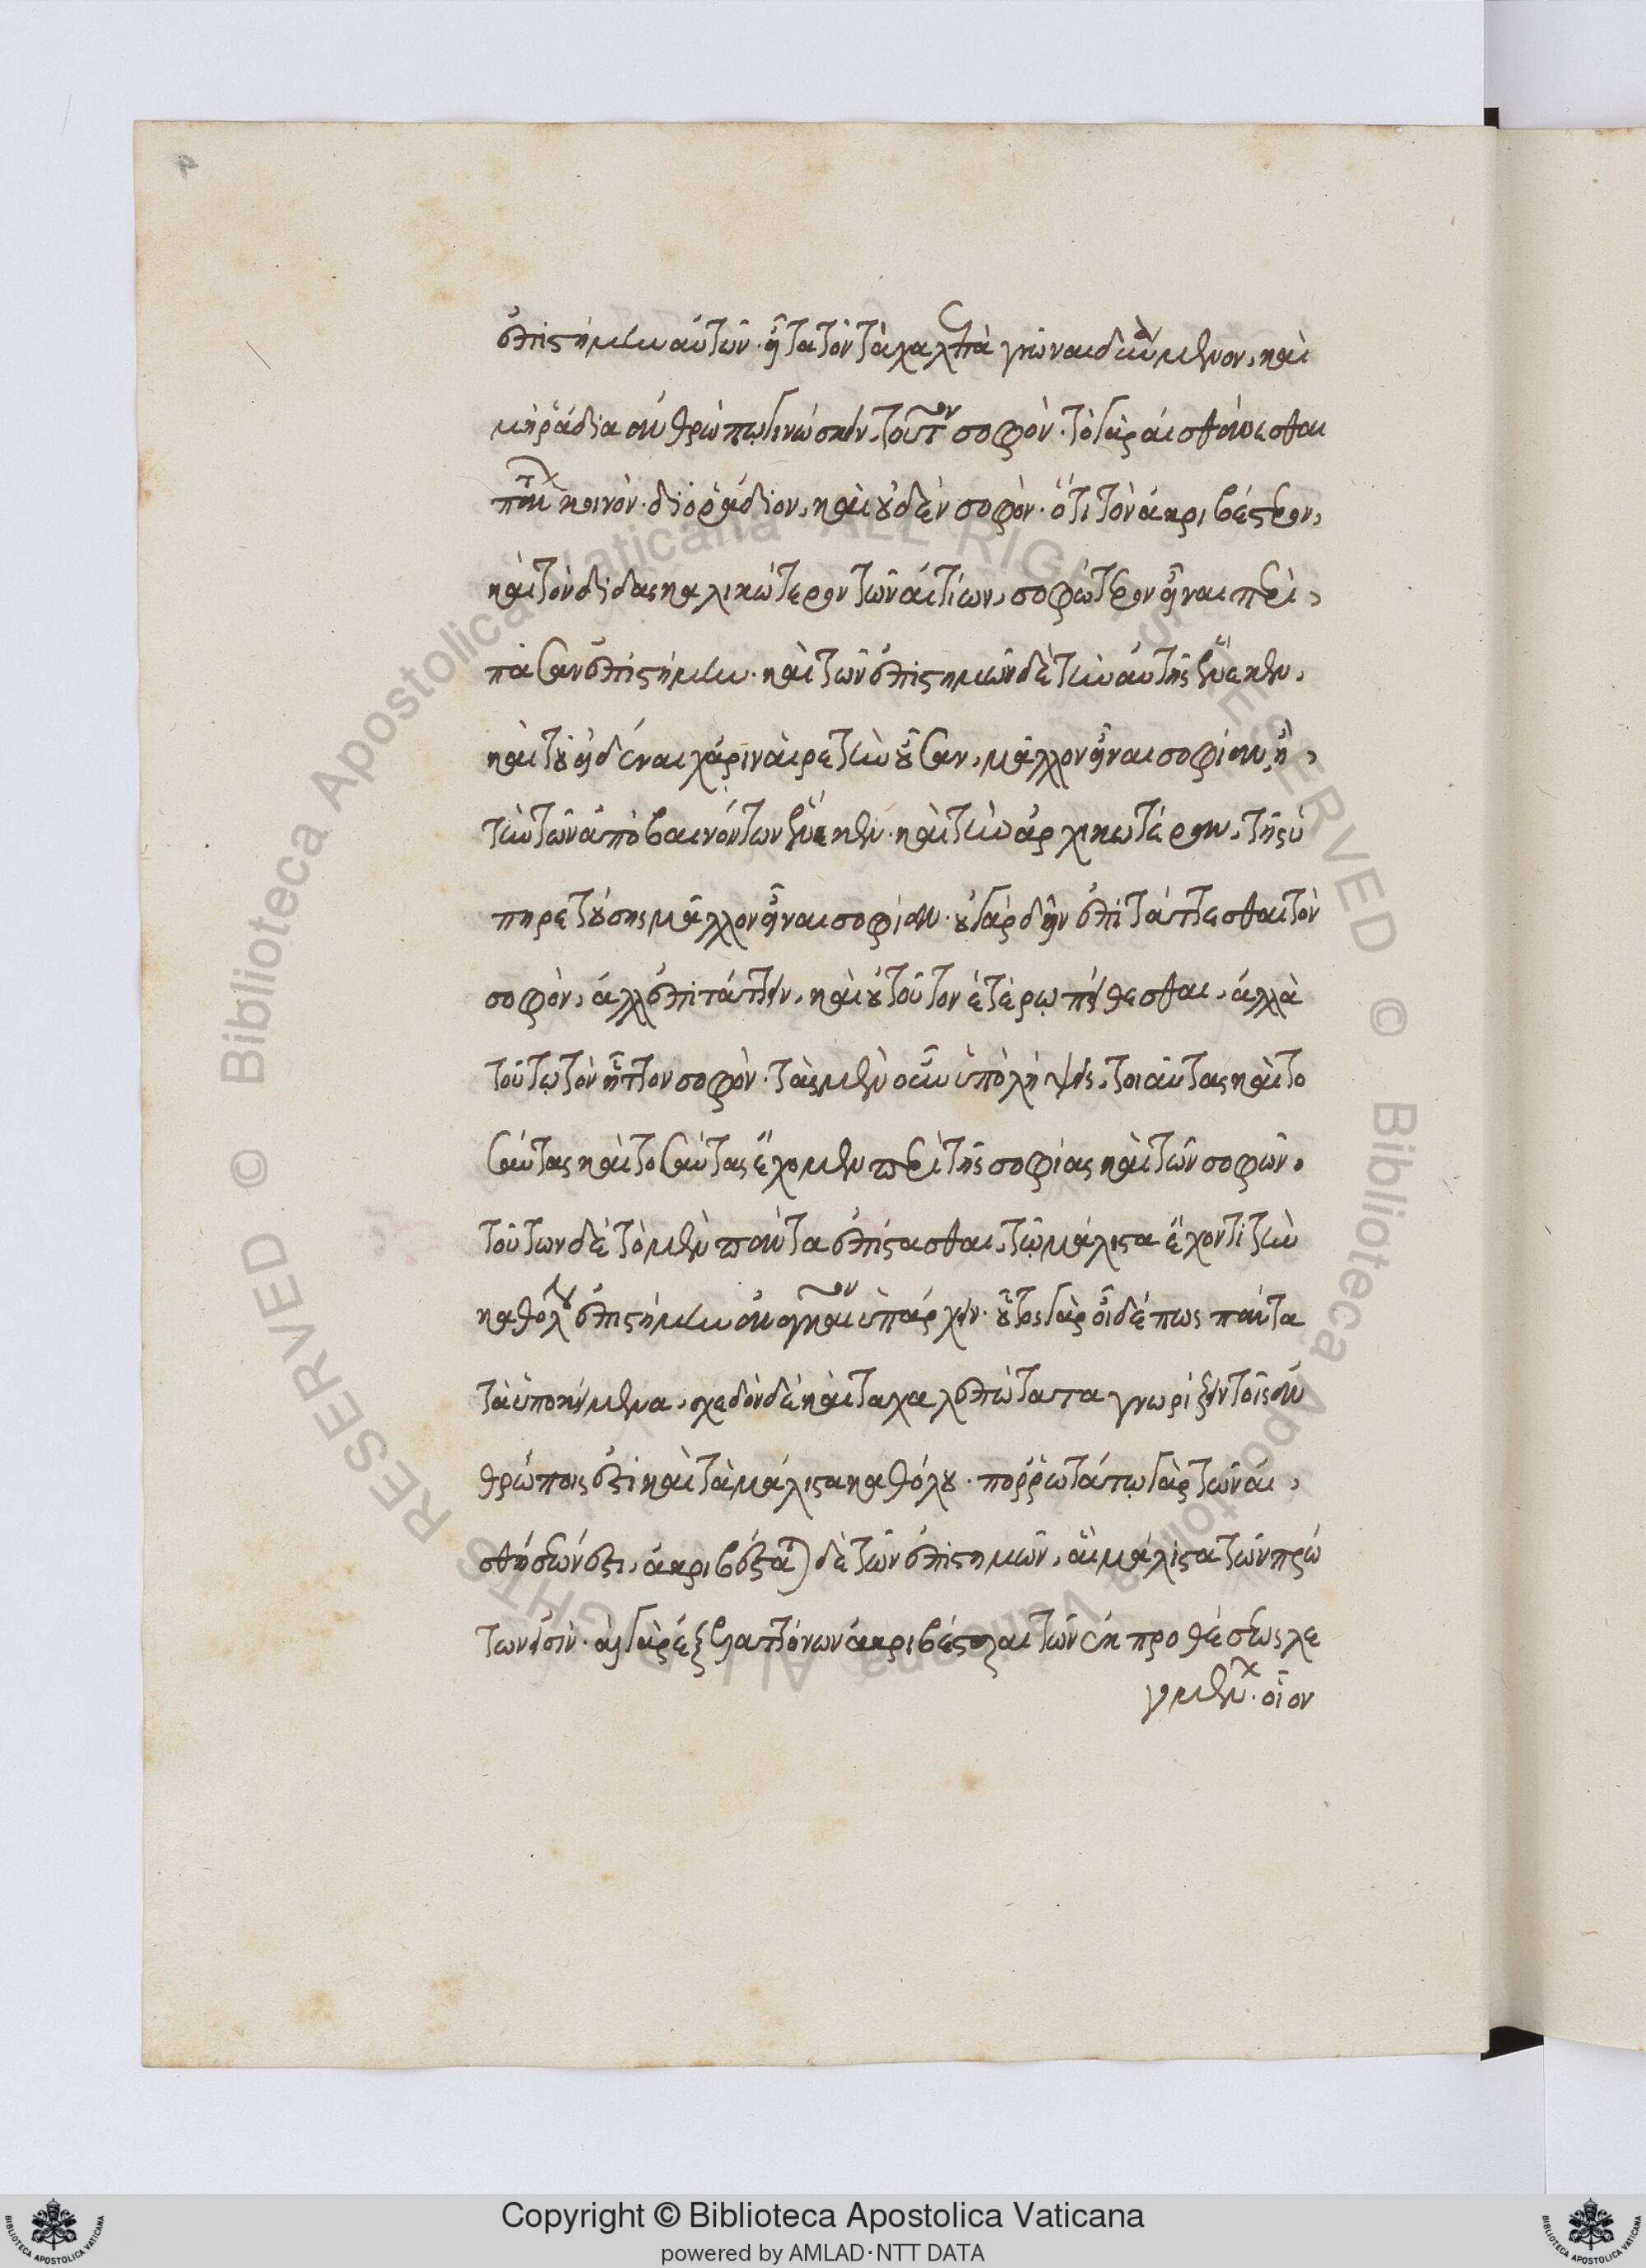 ἐπιστήμην αὐτῶν· εἶτα τὸν τὰ χαλεπὰ γνῶναι δυνάμενον, καὶ
μὴ ῥάδια ἀνθρώπῳ γινώσκειν, τοῦτον σοφόν· τὸ γὰρ αἰσθάνεσθαι
πάντων κοινόν· διὸ ῥάδιον, καὶ οὐδὲν σοφόν· ὅτι τὸν ἀκριβέστερον,
καὶ τὸν διδασκαλικώτερον τῶν αἰτίων, σοφώτερον εἶναι περὶ,
πᾶσαν ἐπιστήμην· καὶ τῶν ἐπιστημῶν δὲ τὴν αὑτῆς ἕνεκεν,
καὶ τοῦ εἰδέναι χάριν αἱρετὴν οὖσαν, μᾶλλον εἶναι σοφίαν, ἢ,
τὴν τῶν ἀποβαινόντων ἕνεκεν· καὶ τὴν ἀρχικωτέραν, τῆς ὑ
πηρετούσης μᾶλλον εἶναι σοφίαν· οὐ γὰρ δεῖν ἐπιτάττεσθαι τὸν
σοφὸν, ἀλλ ἐπιτάττειν, καὶ οὐ τοῦτον ἑτέρῳ πείθεσθαι, ἀλλὰ
τούτῳ τὸν ἧττον σοφόν· τὰς μὲν οὖν ὑπολήψεις, τοιαύτας καὶ το
σαύτας καὶ τοσαύτας ἔχομεν περὶ τῆς σοφίας καὶ τῶν σοφῶν.
τούτων δὲ τὸ μὲν πάντα ἐπίστασθαι, τῷ μάλιστα ἔχοντι τὴν
καθόλου ἐπιστήμην ἀναγκαῖον ὑπάρχειν· οὗτος γὰρ οἶδέ πως πάντα
τὰ ὑποκείμενα, σχεδὸν δὲ καὶ τα χαλεπώτατα γνωρίζειν τοῖς ἀν
θρώποις ἐστὶ καὶ τὰ μάλιστα καθόλου· πορρωτάτω γὰρ τῶν αἰ,
σθήσεών ἐστι, ἀκριβέσταται δὲ τῶν ἐπιστημῶν, αἳ μάλιστα τῶν πρώ
των εἰσίν· αἱ γὰρ ἐξ ἐλαττόνων ἀκριβέστεραι τῶν ἐκ προθέσεως λε
γομένων· οἷον
Copyright © Biblioteca Apostolica Vaticana
powered by AMLAD·NTT DATA
© Biblioteca Apostolica Vaticana ALL RIGHTS RESERVED
© Biblioteca Apostolica Vaticana ALL RIGHTS RESERVED